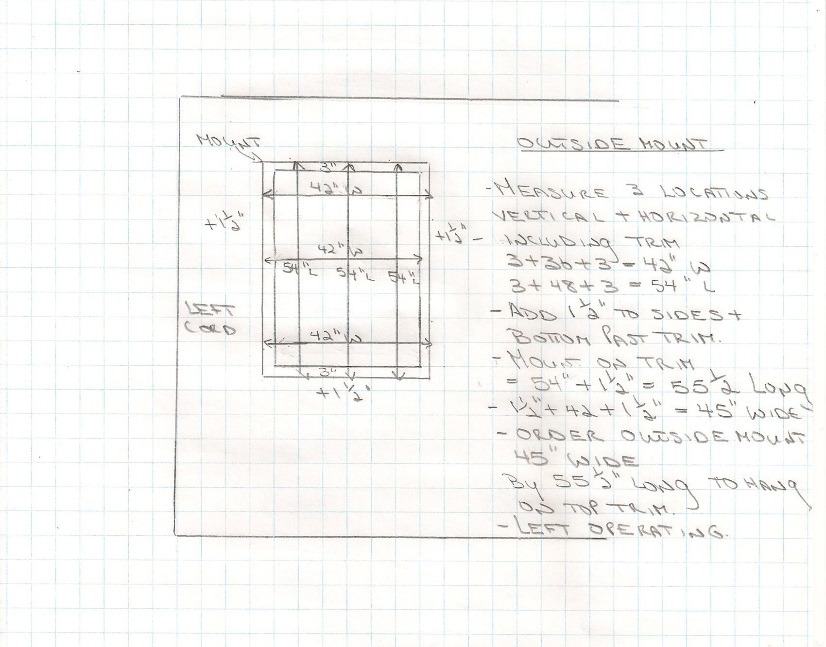 MOUNT
3"
42" W
+1½"
+1½"
42" W
54" L 54" L 54" L
LEFT
CORD
42" W
3"
+1½"
OUTSIDE MOUNT
- MEASURE 3 LOCATIONS
VERTICAL + HORIZONTAL
- INCLUDING TRIM
3+36+3 = 42" W
3+48+3 = 54" L
- ADD 1½" TO SIDES +
BOTTOM PAST TRIM.
- MOUNT ON TRIM
= 54" + 1½" = 55½ LONG
- 1½" + 42 + 1½" = 45" WIDE
- ORDER OUTSIDE MOUNT
45" WIDE
By 55½" LONG TO HANG
ON TOP TRIM.
- LEFT OPERATING.